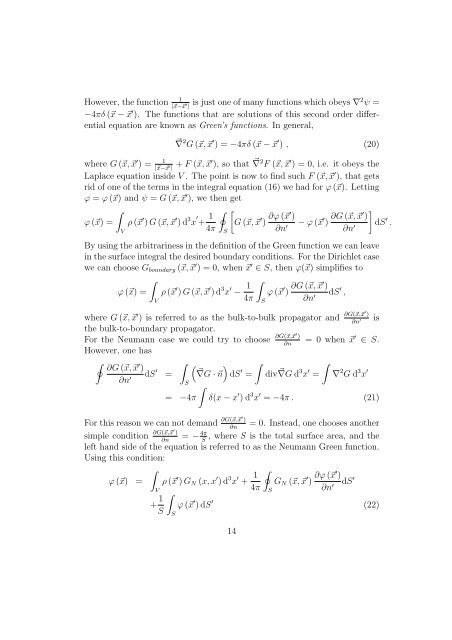 However, the function 1/|x⃗−x⃗′| is just one of many functions which obeys ∇²ψ =
−4πδ (x⃗ − x⃗′). The functions that are solutions of this second order differ-
ential equation are known as Green's functions. In general,
∇⃗²G (x⃗, x⃗′) = −4πδ (x⃗ − x⃗′) , (20)
where G (x⃗, x⃗′) = 1/|x⃗−x⃗′| + F (x⃗, x⃗′), so that ∇⃗²F (x⃗, x⃗′) = 0, i.e. it obeys the
Laplace equation inside V. The point is now to find such F (x⃗, x⃗′), that gets
rid of one of the terms in the integral equation (16) we had for φ (x⃗). Letting
φ = φ (x⃗) and ψ = G (x⃗, x⃗′), we then get
φ (x⃗) = ∫_V ρ (x⃗′) G (x⃗, x⃗′) d³x′ + 1/4π ∮_S [G (x⃗, x⃗′) ∂φ (x⃗′)/∂n′ − φ (x⃗′) ∂G (x⃗, x⃗′)/∂n′] dS′ .
By using the arbitrariness in the definition of the Green function we can leave
in the surface integral the desired boundary conditions. For the Dirichlet case
we can choose G_boundary (x⃗, x⃗′) = 0, when x⃗′ ∈ S, then φ(x⃗) simplifies to
φ (x⃗) = ∫_V ρ (x⃗′) G (x⃗, x⃗′) d³x′ − 1/4π ∫_S φ (x⃗′) ∂G (x⃗, x⃗′)/∂n′ dS′ ,
where G (x⃗, x⃗′) is referred to as the bulk-to-bulk propagator and ∂G(x⃗,x⃗′)/∂n′ is
the bulk-to-boundary propagator.
For the Neumann case we could try to choose ∂G(x⃗,x⃗′)/∂n = 0 when x⃗′ ∈ S.
However, one has
∮ ∂G (x⃗, x⃗′)/∂n′ dS′ = ∫_S (∇⃗G · n⃗) dS′ = ∫ div∇⃗G d³x′ = ∫ ∇²G d³x′
= −4π ∫ δ(x − x′) d³x′ = −4π . (21)
For this reason we can not demand ∂G(x⃗,x⃗′)/∂n = 0. Instead, one chooses another
simple condition ∂G(x⃗,x⃗′)/∂n = −4π/S, where S is the total surface area, and the
left hand side of the equation is referred to as the Neumann Green function.
Using this condition:
φ (x⃗) = ∫_V ρ (x⃗′) G_N (x, x′) d³x′ + 1/4π ∮_S G_N (x⃗, x⃗′) ∂φ (x⃗′)/∂n′ dS′
+ 1/S ∫_S φ (x⃗′) dS′ (22)
14